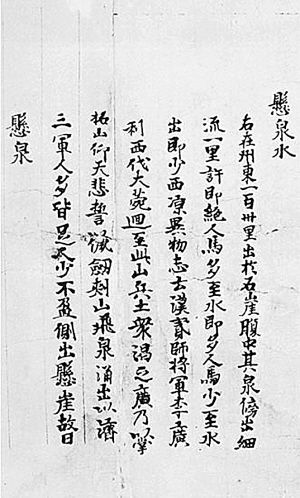 懸泉水
右在州東一百卅里出於石崖腹中其泉傍出細
流一里許即絶人馬多至水即多人馬少至水
出即少西凉異物志云漢貳師將軍李廣
利西伐大宛迴至此山兵士衆渴乏廣乃掌
拓山仰天悲誓劍刺山飛泉涌出以濟
三軍人多皆足人少不盈側出懸崖故曰
懸泉